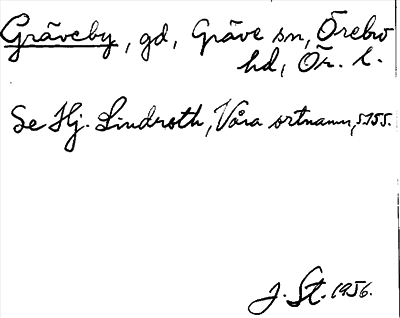 Gräveby, gd, Gräve sn, Örebro
hd, Ör. l.
Se Hj. Lindroth, Våra ortnamn, s. 155.
J. St. 1956.